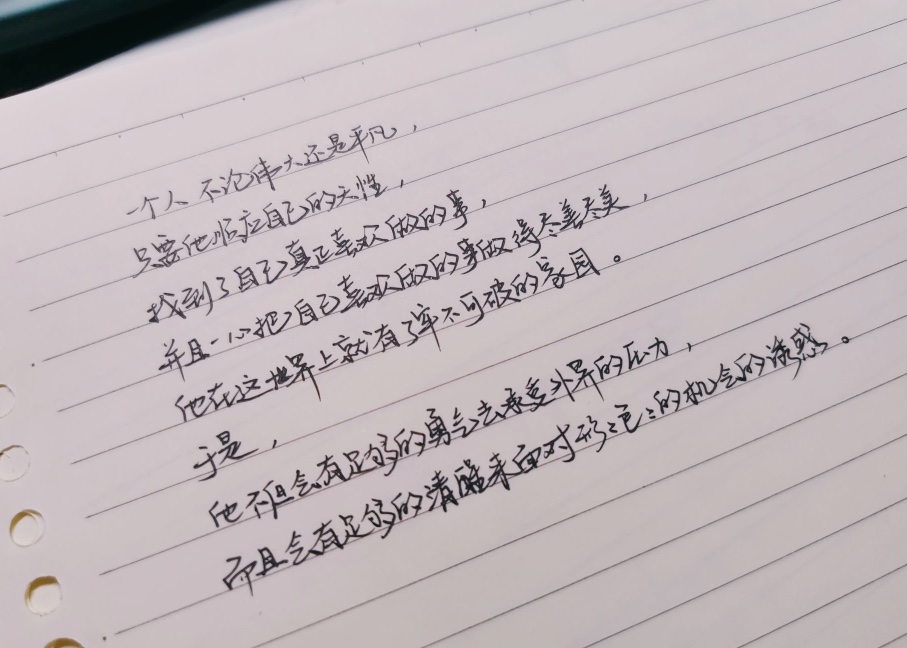 一个人 不论伟大还是平凡，
只要他顺应自己的天性，
找到了自己真正喜欢做的事，
并且一心把自己喜欢做的事做得尽善尽美，
他在这世界上就有了牢不可破的家园。
于是，
他不但会有足够的勇气去承受外界的压力，
而且会有足够的清醒来面对形形色色的机会的诱惑。